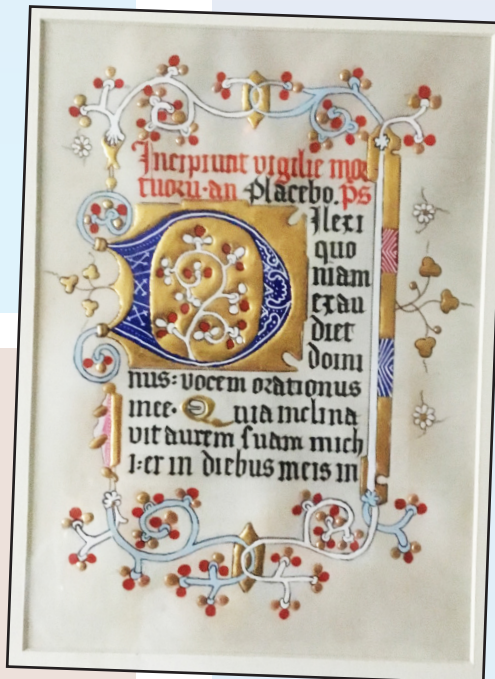 Incipiunt vigilie mor
tuoru·an Placebo.ps
Dilexi
quo
niam
exau
diet
domi
nus: vocem orationus
mee· Quia inclina
vit aurem suam mich
i:et in diebus meis in